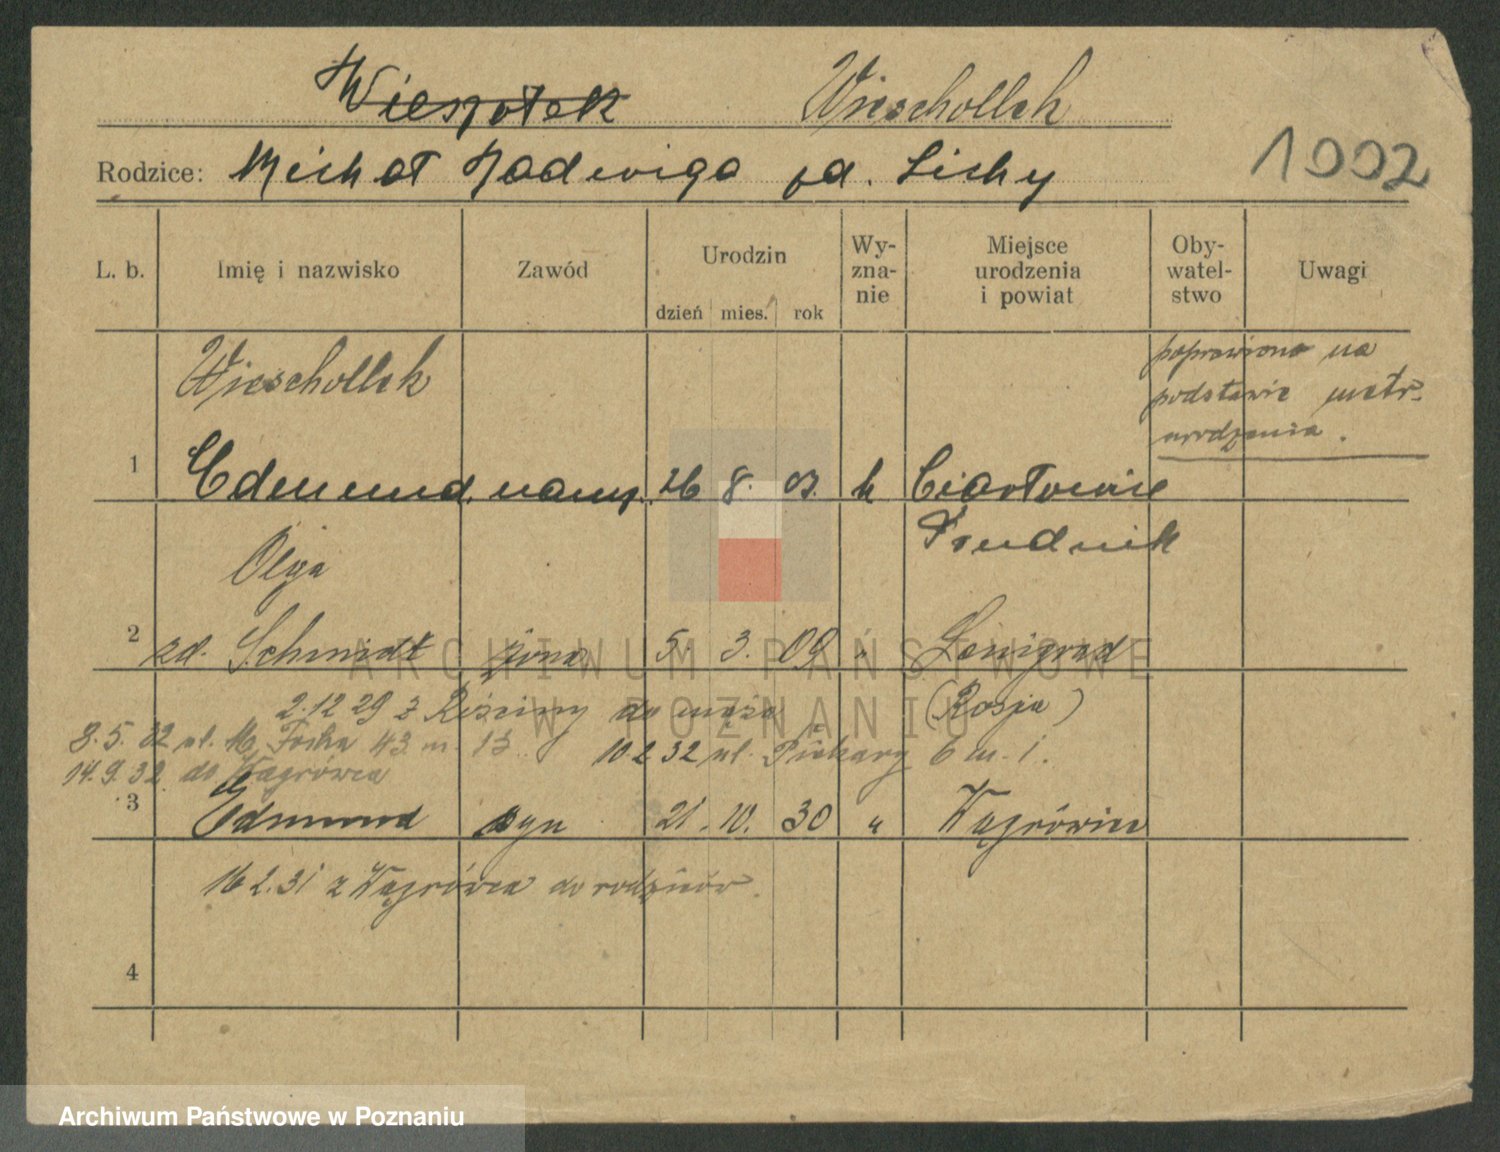 Wieszołek Wieschollek
Rodzice: Michał Jadwiga zd. Lichy
1002
L. b. Imię i nazwisko Zawód Urodzin dzień mies. rok Wy-zna-nie Miejsce urodzenia i powiat Oby-watel-stwo Uwagi
Wieschollek
poprawiono na
podstawie metr.
urodzenia.
1 Edmund naucz. 26 8. 03. k Ciarłowice
Prudnik
Olga
2 zd. Schmidt żona 5. 3. 09 " Leningrad
(Rosja)
2.12 29 z do męża
8.5.32 ul. M. Focha 43 m. 13 10 2 32 ul. Piekary 6 m. 1.
14.9.32 do Wągrówca
3 Edmund syn 21. 10. 30 " Wągrówiec
16 2.31 z Wągrówca do rodziców.
4
ARCHIWUM PAŃSTWOWE
W POZNANIU
Archiwum Państwowe w Poznaniu